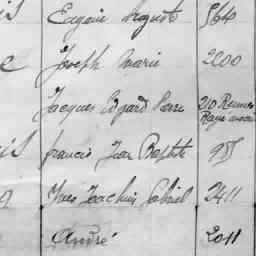 Eugène Auguste 564
Joseph Marie 2000
Jacques Edgard Pierre 210 Rennes
francis Jean Baptiste 955
Yves Joachim Gabriel 2411
André 2011